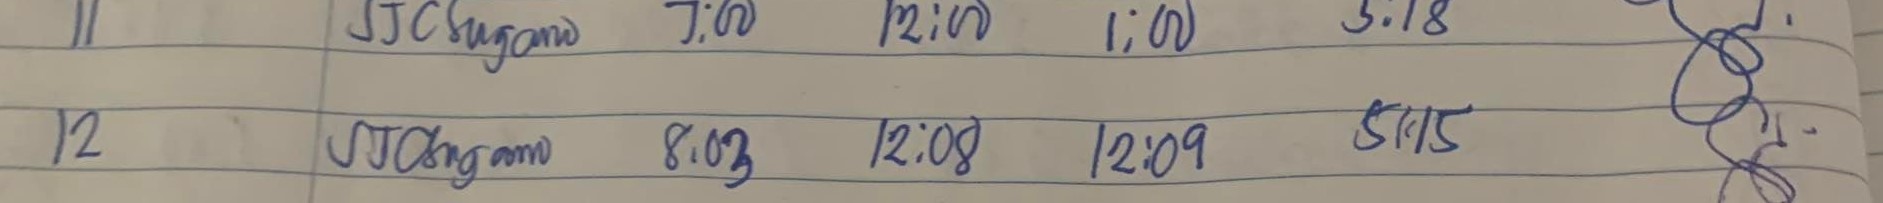 11 JJCSugano 7:00 12:00 1:00 5:18
12 JJCSugano 8:03 12:08 12:09 5:15